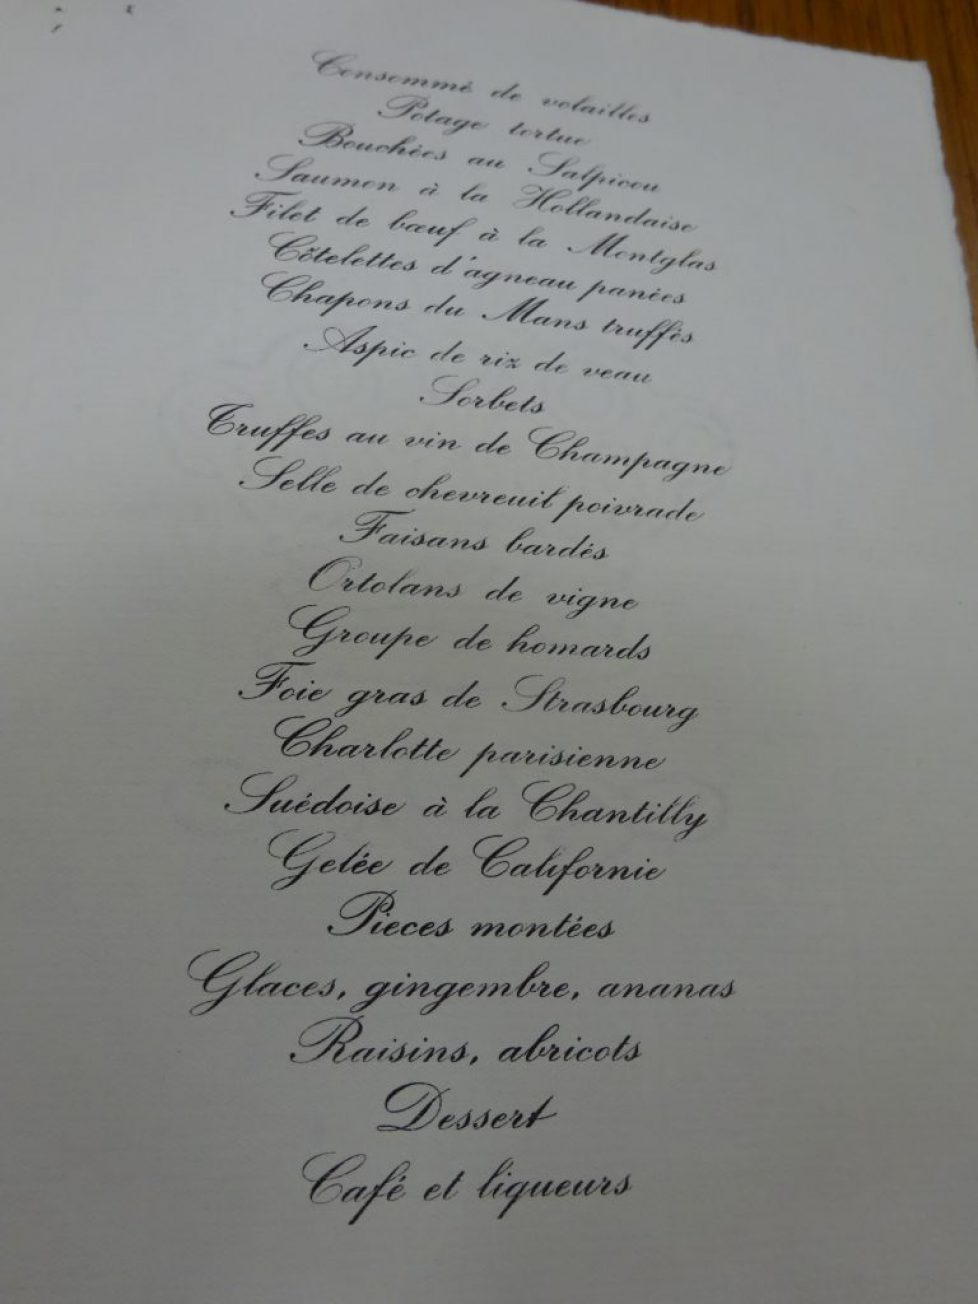 Consommé de volailles
Potage tortue
Bouchées au Salpicon
Saumon à la Hollandaise
Filet de bœuf à la Montglas
Côtelettes d'agneau panées
Chapons du Mans truffés
Aspic de riz de veau
Sorbets
Truffes au vin de Champagne
Selle de chevreuil poivrade
Faisans bardés
Ortolans de vigne
Groupe de homards
Foie gras de Strasbourg
Charlotte parisienne
Suédoise à la Chantilly
Gelée de Californie
Pieces montées
Glaces, gingembre, ananas
Raisins, abricots
Dessert
Café et liqueurs